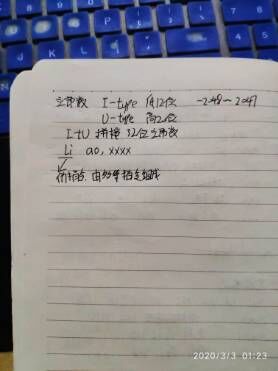 立即数 I-type 低12位 -2048~2047
U-type 高20位
I+U 拼接 32位立即数
Li a0, xxxx
伪指令 由多条指令组成
2020/3/3 01:23